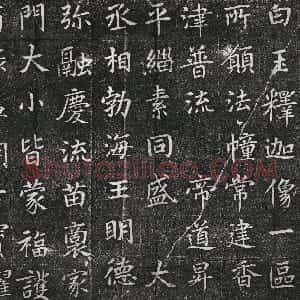 白王釋迦像一區
所願法幢常建香
津普流 帝道昇
平緇素同盛 大
丞相勃海王明德
弥融慶法苗裏家
門大小皆蒙福護